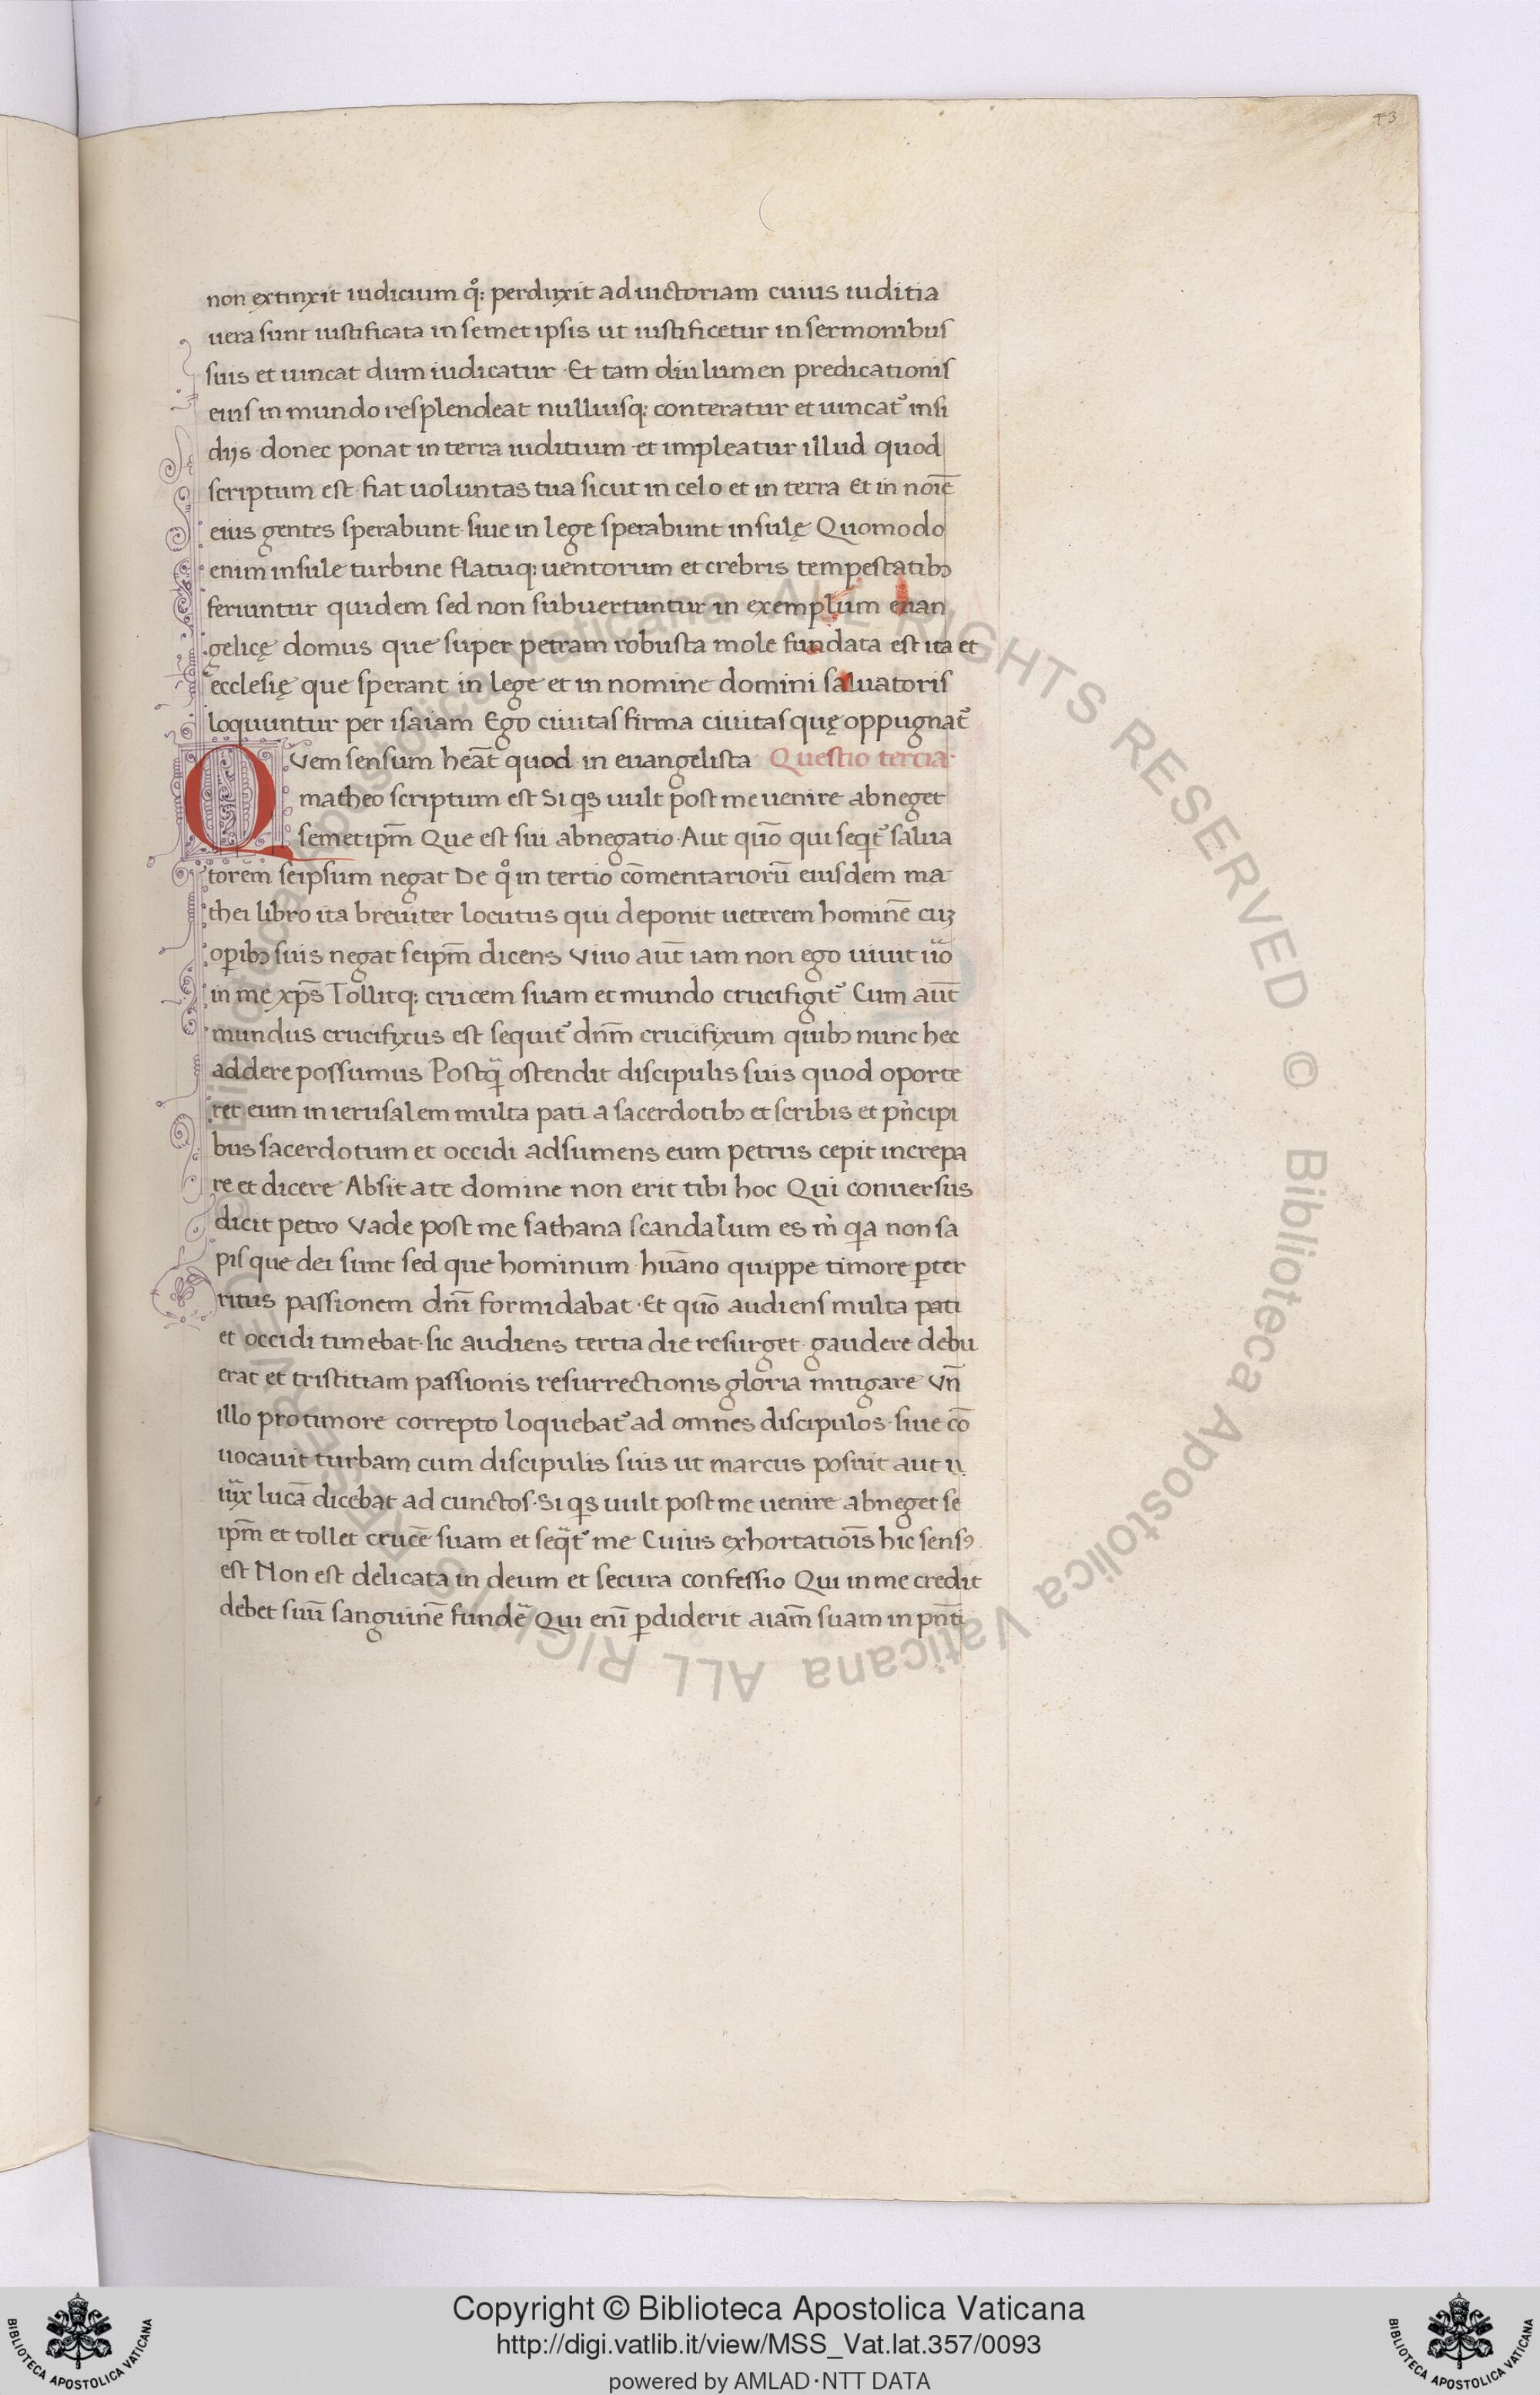 43
non extinxit iudicium qͦ: perduxit ad uictoriam cuius iuditia
uera sunt iustificata in semet ipsis ut iustificetur in sermonibus
suis et uincat dum iudicatur · Et tam diu lumen predicationis
eius in mundo resplendeat nulliusq: conteratur et uincat᷑ insi
dijs · donec ponat in terra iuditium · et impleatur illud quod
scriptum est · fiat uoluntas tua sicut in celo et in terra Et in noīe
eius gentes sperabunt · siue in lege sperabunt insulę Quomodo
enim insule turbine flatuq: uentorum et crebris tempestatibꝫ
feriuntur quidem sed non subuertuntur in exemplum euan
gelicę domus que super petram robusta mole fundata est ita et
ecclesię que sperant in lege et in nomine domini saluatoris
loquuntur per isaiam Ego ciuitas firma ciuitas quę oppugnat᷑
QVem sensum heāt quod in euangelista Questio tercia·
matheo scriptum est Si qͥs uult post me uenire abneget
semetipm̄ Que est sui abnegatio · Aut quō qui seqͥt᷑ salua
torem seipsum negat De qͦ in tertio cōmentariorū eiusdem ma
thei libro ita breuiter locutus qui deponit ueterem hominē cuꝫ
oꝑibꝫ suis negat seipm̄ dicens Viuo aut̄ iam non ego uiuit uͦo
in me xp̄s Tollitq: crucem suam et mundo crucifigit᷑ Cum aut̄
mundus crucifixus est sequit᷑ dnm̄ crucifixum quibꝫ nunc hec
addere possumus Postqᷓ ostendit discipulis suis quod oporte
ret eum in ierusalem multa pati a sacerdotibꝫ et scribis et pͥncipi
bus sacerdotum et occidi adsumens eum petrus cepit increpa
re et dicere Absit a te domine non erit tibi hoc Qui conuersus
dicit petro Vade post me sathana scandalum es mͥ qͥa non sa
pis que dei sunt sed que hominum · huāno quippe timore ꝑter
ritus passionem dnī formidabat · Et quō audiens multa pati
et occidi timebat · sic audiens tertia die resurget · gaudere debu
erat et tristitiam passionis resurrectionis gloria mitigare Vn̄
illo pro timore correpto loquebat᷑ ad omnes discipulos · siue cō
uocauit turbam cum discipulis suis ut marcus posuit aut
iuͣx lucā dicebat ad cunctos · Si qͥs uult post me uenire abneget se
ipm̄ et tollet crucē suam et seqᷓt᷑ me Cuius exhortatiōis hic sensꝰ
est Non est delicata in deum et secura confessio Qui in me credit
debet suū sanguinē fundē Qui enī ꝑdiderit aīam suam in pn̄ti
Copyright © Biblioteca Apostolica Vaticana
http://digi.vatlib.it/view/MSS_Vat.lat.357/0093
powered by AMLAD·NTT DATA
BIBLIOTECA APOSTOLICA VATICANA
BIBLIOTECA APOSTOLICA VATICANA
© Biblioteca Apostolica Vaticana ALL RIGHTS RESERVED